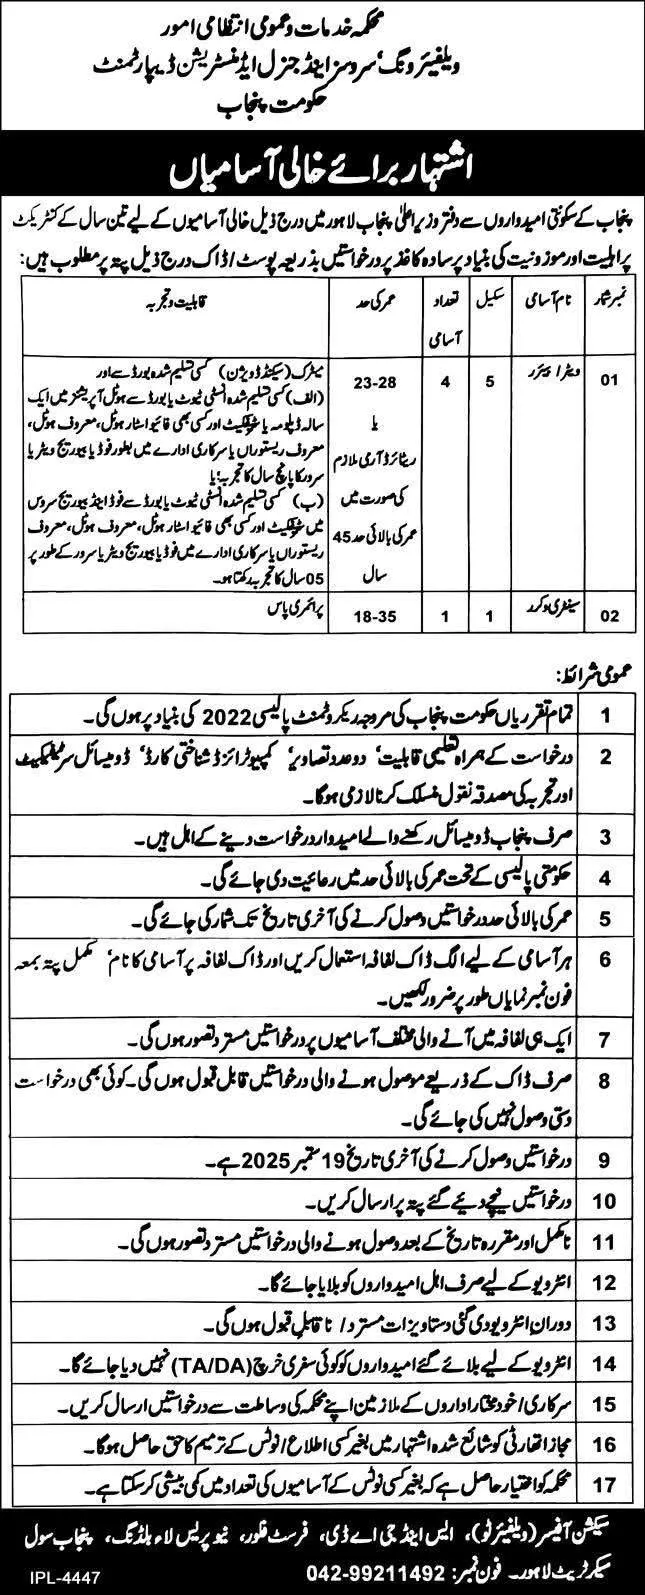 محکمہ خدمات و عمومی انتظامی امور
ویلفیئر ونگ، سروسز اینڈ جنرل ایڈمنسٹریشن ڈیپارٹمنٹ
حکومت پنجاب
اشتہار برائے خالی آسامیاں
پنجاب کے سکونتی امیدواروں سے دفتر وزیر اعلیٰ پنجاب لاہور میں درج ذیل خالی آسامیوں کے لیے تین سال کے کنٹریکٹ
پر اہلیت اور موزونیت کی بنیاد پر سادہ کاغذ پر درخواستیں بذریعہ پوسٹ / ڈاک درج ذیل پتہ پر مطلوب ہیں:
نمبر شمار نام آسامی سکیل تعداد آسامی عمر کی حد قابلیت و تجربہ
01 ویٹر / بیئرر 5 4
23-28
یا
ریٹائرڈ آرمی ملازم
کی صورت میں
عمر کی بالائی حد 45
سال
میٹرک (سیکنڈ ڈویژن) کسی تسلیم شدہ بورڈ سے اور
(الف) کسی تسلیم شدہ انسٹی ٹیوٹ یا بورڈ سے ہوٹل آپریشنز میں ایک
سالہ ڈپلومہ یا سرٹیفکیٹ اور کسی بھی فائیو اسٹار ہوٹل، معروف ہوٹل،
معروف ریستوراں یا سرکاری ادارے میں بطور فوڈ یا بیوریج ویٹر یا
سرور کا پانچ سال کا تجربہ؛ یا
(ب) کسی تسلیم شدہ انسٹی ٹیوٹ یا بورڈ سے فوڈ اینڈ بیوریج سروس
میں سرٹیفکیٹ اور کسی بھی فائیو اسٹار ہوٹل، معروف ہوٹل، معروف
ریستوراں یا سرکاری ادارے میں فوڈ یا بیوریج ویٹر یا سرور کے طور پر
05 سال کا تجربہ رکھتا ہو۔
02 سینٹری ورکر 1 1 18-35 پرائمری پاس
عمومی شرائط:
1 تمام تقرریاں حکومت پنجاب کی مروجہ ریکروٹمنٹ پالیسی 2022 کی بنیاد پر ہوں گی۔
2 درخواست کے ہمراہ تعلیمی قابلیت، دو عدد تصاویر، کمپیوٹرائزڈ شناختی کارڈ، ڈومیسائل سرٹیفکیٹ
اور تجربہ کی مصدقہ نقول منسلک کرنا لازمی ہوگا۔
3 صرف پنجاب ڈومیسائل رکھنے والے امیدوار درخواست دینے کے اہل ہیں۔
4 حکومتی پالیسی کے تحت عمر کی بالائی حد میں رعایت دی جائے گی۔
5 عمر کی بالائی حد درخواستیں وصول کرنے کی آخری تاریخ تک شمار کی جائے گی۔
6 ہر آسامی کے لیے الگ ڈاک لفافہ استعمال کریں اور ڈاک لفافہ پر آسامی کا نام، مکمل پتہ بمعہ
فون نمبر نمایاں طور پر ضرور لکھیں۔
7 ایک ہی لفافہ میں آنے والی مختلف آسامیوں پر درخواستیں مسترد تصور ہوں گی۔
8 صرف ڈاک کے ذریعے موصول ہونے والی درخواستیں قابل قبول ہوں گی۔ کوئی بھی درخواست
دستی وصول نہیں کی جائے گی۔
9 درخواستیں وصول کرنے کی آخری تاریخ 19 ستمبر 2025 ہے۔
10 درخواستیں نیچے دیئے گئے پتہ پر ارسال کریں۔
11 نامکمل اور مقررہ تاریخ کے بعد وصول ہونے والی درخواستیں مسترد تصور ہوں گی۔
12 انٹرویو کے لیے صرف اہل امیدواروں کو بلایا جائے گا۔
13 دوران انٹرویو دی گئی دستاویزات مسترد / ناقابل قبول ہوں گی۔
14 انٹرویو کے لیے بلائے گئے امیدواروں کو کوئی سفری خرچ (TA/DA) نہیں دیا جائے گا۔
15 سرکاری / خود مختار اداروں کے ملازمین اپنے محکمہ کی وساطت سے درخواستیں ارسال کریں۔
16 مجاز اتھارٹی کو شائع شدہ اشتہار میں بغیر کسی اطلاع / نوٹس کے ترمیم کا حق حاصل ہوگا۔
17 محکمہ کو اختیار حاصل ہے کہ بغیر کسی نوٹس کے آسامیوں کی تعداد میں کمی بیشی کر سکتا ہے۔
سیکشن آفیسر (ویلفیئر ٹو)، ایس اینڈ جی اے ڈی، فرسٹ فلور، نیو پریس لاء بلڈنگ، پنجاب سول
سیکرٹریٹ لاہور۔ فون نمبر: 042-99211492
IPL-4447